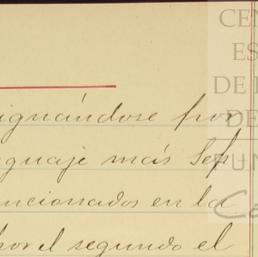 CEN
ES
DE
DE
FUN
Ca
ignándose por
guaje más Sep
ncionados en la
por el segundo el